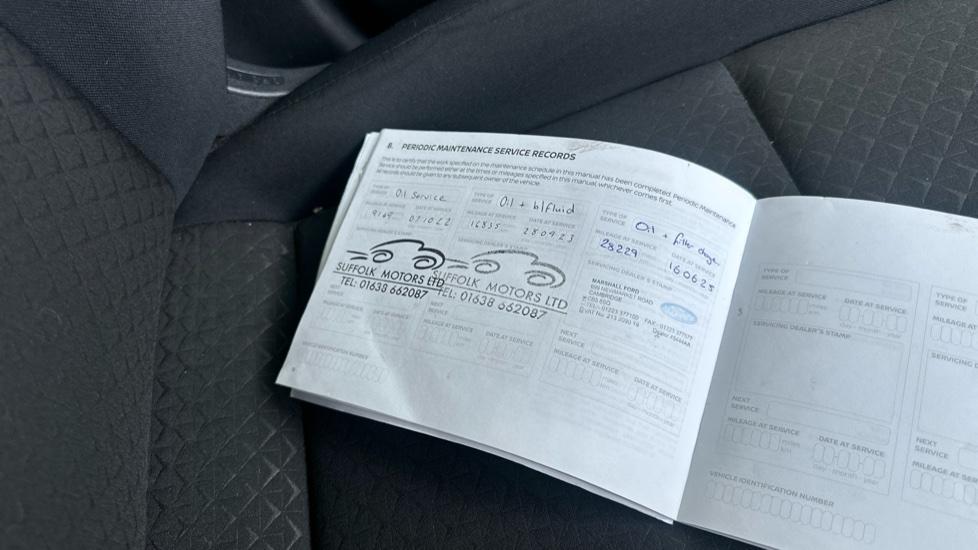 8. PERIODIC MAINTENANCE SERVICE RECORDS
This is to certify that the work specified on the maintenance schedule in this manual has been completed. Periodic Maintenance
Service should be performed either at the times or mileages specified in this manual, whichever comes first.
All records should be given to any subsequent owner of the vehicle.
TYPE OF SERVICE Oil Service
MILEAGE AT SERVICE DATE AT SERVICE
9169 071022
SERVICING DEALER'S STAMP
SUFFOLK MOTORS LTD
TEL: 01638 662087
NEXT SERVICE
MILEAGE AT SERVICE DATE AT SERVICE
VEHICLE IDENTIFICATION NUMBER
TYPE OF SERVICE Oil + b/fluid
MILEAGE AT SERVICE DATE AT SERVICE
16835 280923
SERVICING DEALER'S STAMP
SUFFOLK MOTORS LTD
TEL: 01638 662087
NEXT SERVICE
MILEAGE AT SERVICE DATE AT SERVICE
TYPE OF SERVICE Oil + filter change
MILEAGE AT SERVICE DATE AT SERVICE
28229 160625
SERVICING DEALER'S STAMP
MARSHALL FORD
NEWMARKET ROAD
CAMBRIDGE
NEXT SERVICE
MILEAGE AT SERVICE
DATE AT SERVICE
day month year
TYPE OF SERVICE
MILEAGE AT SERVICE DATE AT SERVICE
day month year
SERVICING DEALER'S STAMP
NEXT SERVICE
MILEAGE AT SERVICE miles km
DATE AT SERVICE
day month year
VEHICLE IDENTIFICATION NUMBER
TYPE OF SERVICE
MILEAGE
SERVICING
NEXT SERVICE
MILEAGE AT